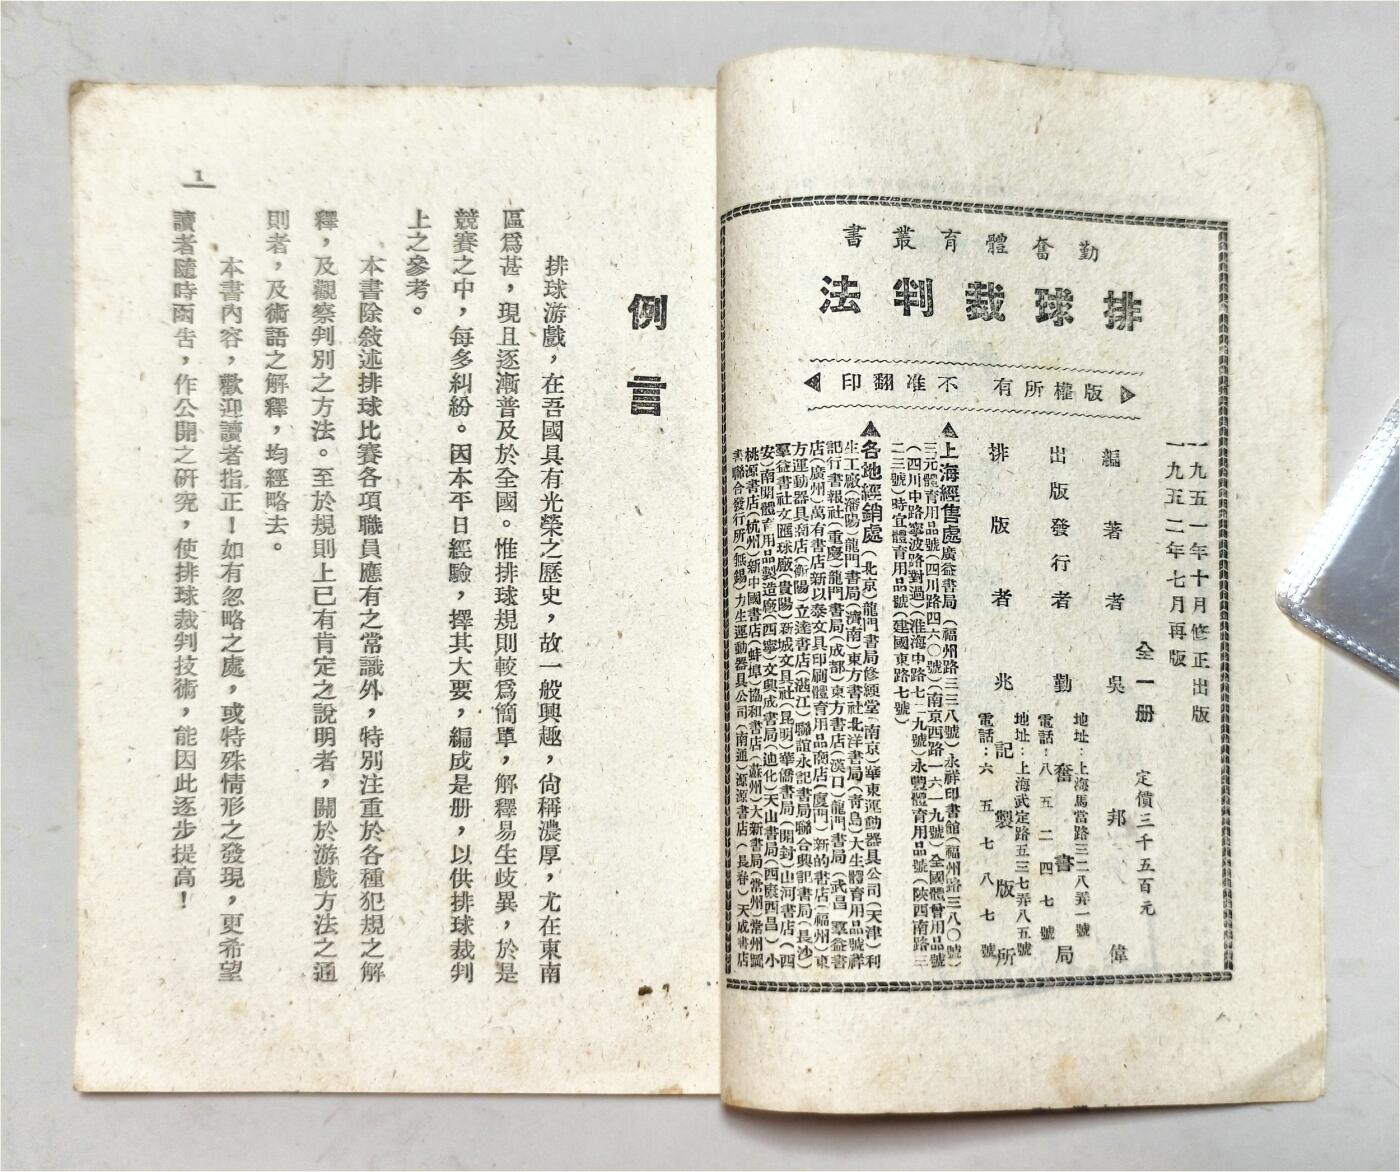 勤奮體育叢書
排球裁判法
版權所有 不准翻印
一九五一年十月修正出版
一九五二年七月再版
全一册 定價三千五百元
編著者 吳邦偉
出版發行者 勤奮書局
地址：上海馬當路三二八弄一號
電話：八五二四七號
排版者 兆記製版所
地址：上海武定路五三七弄八五號
電話：六五七八七號
上海經售處 廣益書局（福州路三三八號）永祥印書館（福州路三八〇號）
三元體育用品號（四川路四六〇號）（南京西路一六一九號）全國體育用品號
（四川中路寧波路對過）（淮海中路七二九號）永豐體育用品號（陝西南路三
二三號）時宜體育用品號（建國東路七號）
各地經銷處（北京）龍門書局修綆堂（南京）華東運動器具公司（天津）利
生工廠（瀋陽）龍門書局（濟南）東方書社北洋書局（青島）大生體育用品號祥
記行書報社（重慶）龍門書局（成都）東方書店（漢口）龍門書局（武昌）羣益書
店（廣州）萬有書店新以泰文具印刷體育用品商店（廈門）新的書店（福州）東
方運動器具商店（衡陽）立達書店（涵江）聯誼永記書局聯合興記書局（長沙）
羣益書社文匯球廠（貴陽）新城文具社（昆明）華僑書局（開封）山河書店（西
安）南開體育用品製造廠（西寧）文興成書局（迪化）天山書局（西康西昌）小
桃源書店（杭州）新中國書店（蚌埠）協和書店（蘇州）大新書局（常州）常州圖
書聯合發行所（無錫）力生運動器具公司（南通）源源書店（長春）天成書店
例言
排球游戲，在吾國具有光榮之歷史，故一般興趣，尙稱濃厚，尤在東南
區爲甚，現且逐漸普及於全國。惟排球規則較爲簡單，解釋易生歧異，於是
競賽之中，每多糾紛。因本平日經驗，擇其大要，編成是册，以供排球裁判
上之參考。
本書除敘述排球比賽各項職員應有之常識外，特別注重於各種犯規之解
釋，及觀察判別之方法。至於規則上已有肯定之說明者，關於游戲方法之通
則者，及術語之解釋，均經略去。
本書內容，歡迎讀者指正！如有忽略之處，或特殊情形之發現，更希望
讀者隨時函告，作公開之研究，使排球裁判技術，能因此逐步提高！
1